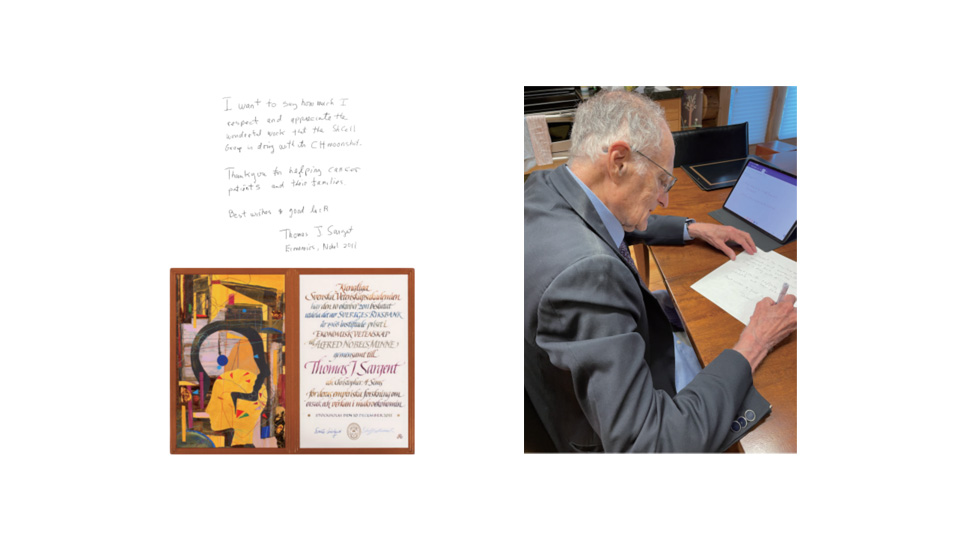 I want to say how much I
respect and appreciate the
wonderful work that the
Group is doing with the CH moonshot.
Thank you for helping cancer
patients and their families.
Best wishes & good luck
Thomas J Sargent
Economics, Nobel 2011
Kungliga
Svenska Vetenskapsakademien
har den 10 oktober 2011 beslutat
utdela det av SVERIGES RIKSBANK
år 1968 instiftade priset i
EKONOMISK VETENSKAP
ALFRED NOBELS MINNE
gemensamt till
Thomas J Sargent
och Christopher A Sims
för deras empiriska forskning om
orsak och verkan i makroekonomin
STOCKHOLM DEN 10 DECEMBER 2011